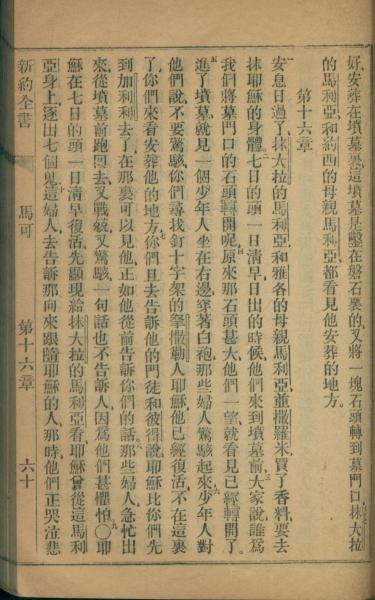 好、安葬在墳墓裏、這墳墓是鑿在磐石裏的、又將一塊石頭轉到墓門口、抹大拉
的馬利亞、和約西的母親馬利亞、都看見他安葬的地方。
第十六章
一安息日過了、抹大拉的馬利亞、和雅各的母親馬利亞、並撒羅米、買了香料、要去
抹耶穌的身體、二七日的頭一日清早、日出的時候、他們來到墳墓前、三大家說、誰爲
我們將墓門口的石頭輥開呢、四原來那石頭甚大、他們一望、就看見已經輥開了。
五進了墳墓、就見一個少年人坐在右邊、穿著白袍、那些婦人驚駭起來、六少年人對
他們說、不要驚駭、你們尋找釘十字架的拿撒勒人耶穌、他已經復活、不在這裏
了、你們來看安葬他的地方、七你們且去告訴他的門徒和彼得說、耶穌比你們先
到加利利去了、在那裏可以見他、正如他從前告訴你們的話、八那些婦人急忙出
來、從墳墓前跑回去、又戰兢、又驚駭、一句話也不告訴人、因爲他們甚懼怕〇九耶
穌在七日的頭一日清早復活、先顯現給抹大拉的馬利亞看、耶穌曾從這馬利
亞身上、逐出七個鬼、十這婦人去告訴那向來跟隨耶穌的人、那時他們正哭泣悲
新約全書 馬可 第十六章 六十